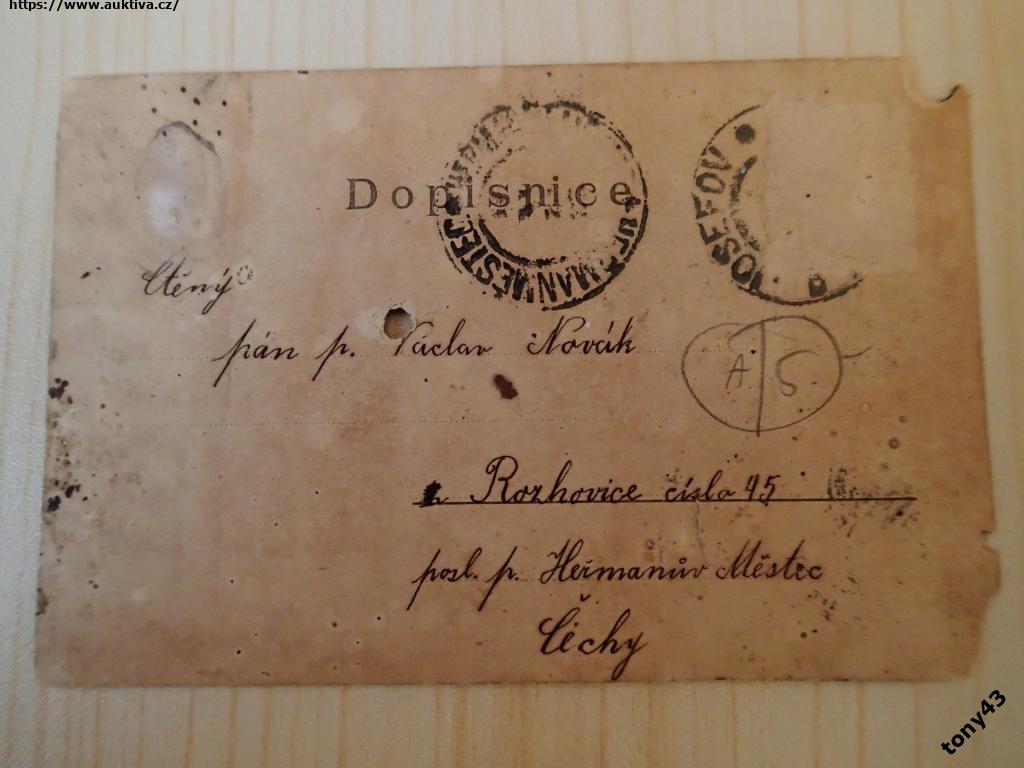 https://www.auktiva.cz/
Dopisnice
HEŘMANMĚSTEC
JOSEFOV
Ctěný
pán p. Václav Novák
A. 5.
z Rozhovice číslo 45
posl. p. Heřmanův Městec
Čéchy
tony43